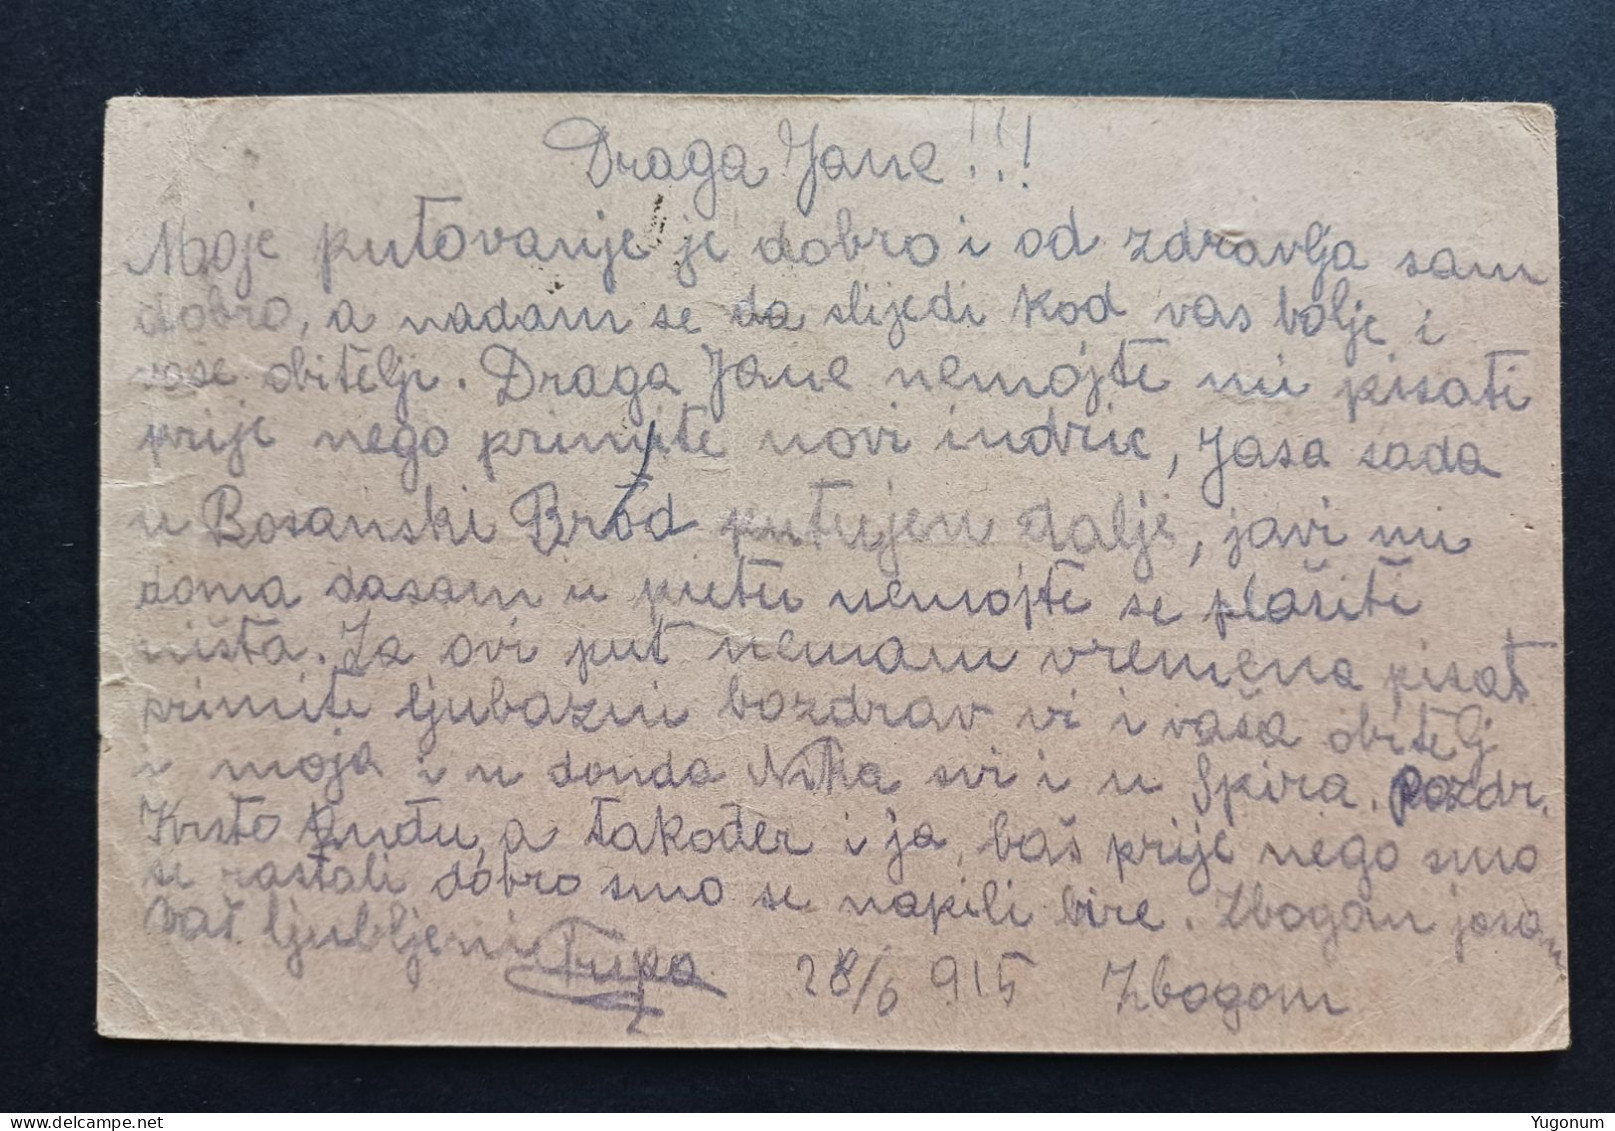 Draga Jane!!!
Moje putovanje je dobro i od zdravlja sam
dobro, a nadam se da slijedi kod vas bolje i
vase obitelji. Draga Jane nemojte mi pisati
prije nego primite novi indric, Jasa sada
u Bosanski Brod putujen dalje, javi mi
doma dasam u putu nemojte se plašiti
ništa. Za ovi put nemam vremena pisat
primite ljubazni bozdrav vi i vaša obitelj
i moja i u donda Nika svi i u Spira. Pozdr.
Krsto a također i ja, baš prije nego smo
se rastali dobro smo se napili bire. Zbogom josam
Vaš ljubljeni Tripo 28/6 915 Zbogom
www.delcampe.net
Yugonum